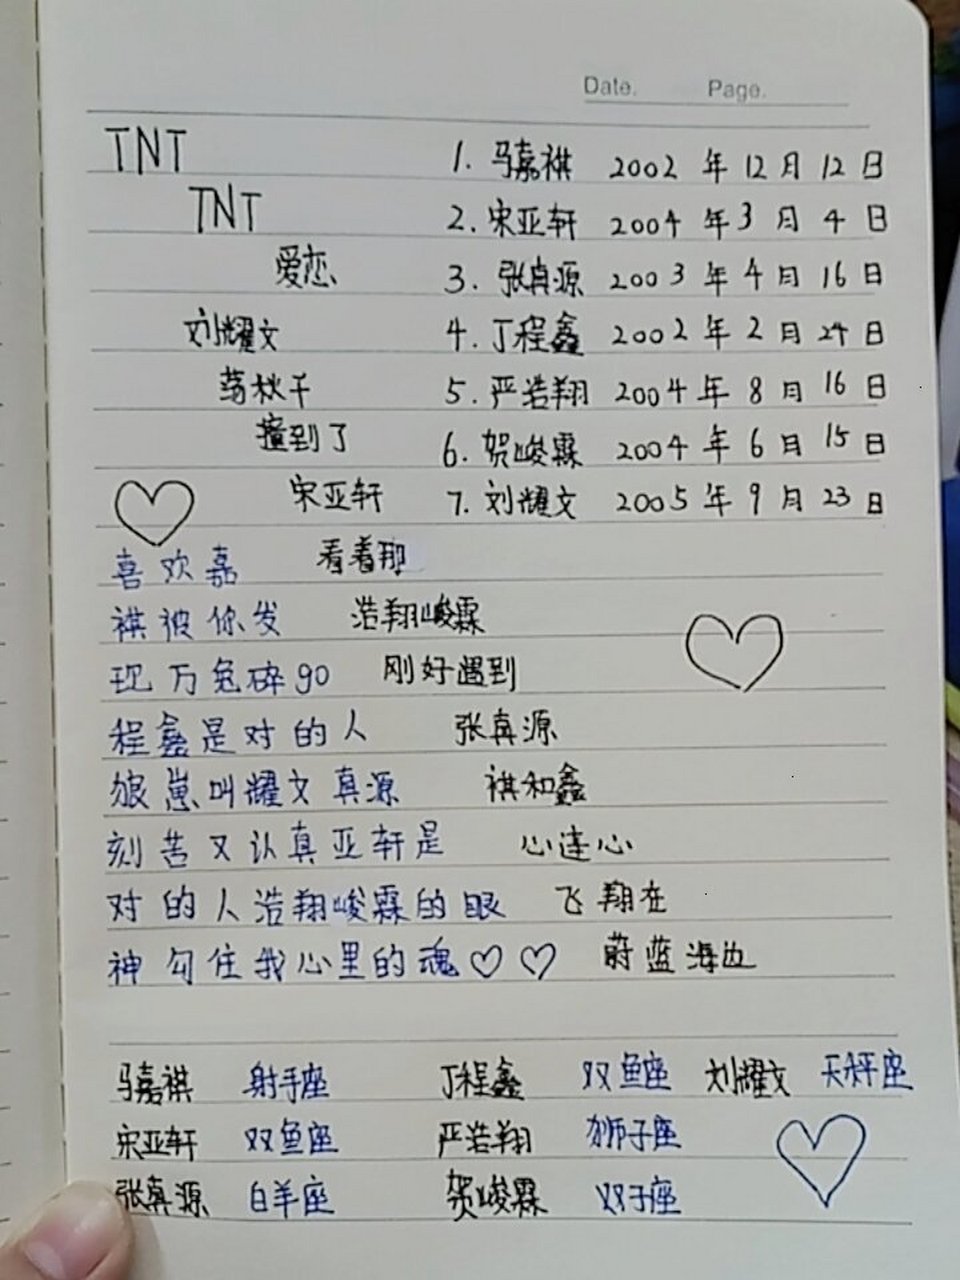 Date. Page.
TNT 1. 马嘉祺 2002 年 12 月 12 日
TNT 2. 宋亚轩 2004 年 3 月 4 日
爱恋 3. 张真源 2003 年 4 月 16 日
刘耀文 4. 丁程鑫 2002 年 2 月 24 日
荡秋千 5. 严浩翔 2004 年 8 月 16 日
撞到了 6. 贺峻霖 2004 年 6 月 15 日
宋亚轩 7. 刘耀文 2005 年 9 月 23 日
喜欢嘉 看着那
祺被你发 浩翔峻霖
现万兔碎90 刚好遇到
程鑫是对的人 张真源
狼崽叫耀文真源 祺和鑫
刻苦又认真亚轩是 心连心
对的人浩翔峻霖的眼 飞翔在
神勾住我心里的魂♡♡ 蔚蓝海边
马嘉祺 射手座 丁程鑫 双鱼座 刘耀文 天秤座
宋亚轩 双鱼座 严浩翔 狮子座
张真源 白羊座 贺峻霖 双子座